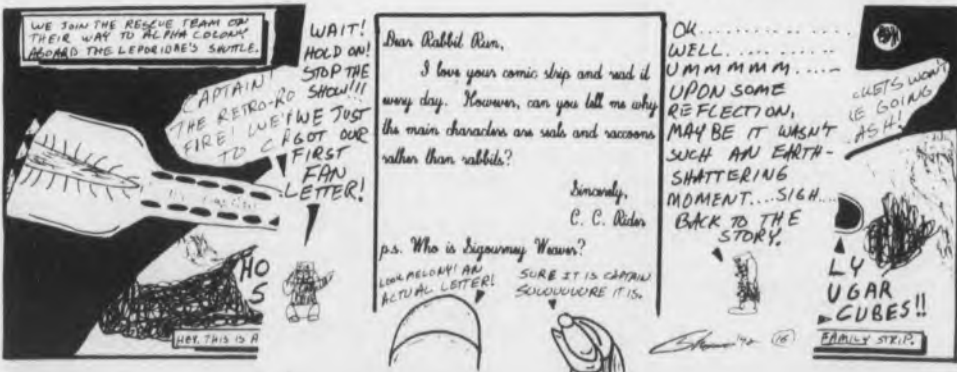 WE JOIN THE RESCUE TEAM ON
THEIR WAY TO ALPHA COLONY
ABOARD THE LEPORIDAE'S SHUTTLE.
CAPTAIN!
THE RETRO-RO
FIRE! WE'
TO C
WAIT!
HOLD ON!
STOP THE
SHOW!!!
WE JUST
GOT OUR
FIRST
FAN
LETTER!
HO
S
HEY, THIS IS A
Dear Rabbit Run,
I love your comic strip and read it
every day. However, can you tell me why
the main characters are seals and raccoons
rather than rabbits?
Sincerely,
C. C. Rider
p.s. Who is Sigourney Weaver?
LOOK MELONY! AN
ACTUAL LETTER!
SURE IT IS CAPTAIN
SUUUUUURE IT IS.
OK..............
WELL...........
UMMMMM.....
UPON SOME
REFLECTION,
MAYBE IT WASN'T
SUCH AN EARTH-
SHATTERING
MOMENT....SIGH...
BACK TO THE
STORY.
'92
CKETS WON'T
E GOING
ASH!
LY
UGAR
CUBES!!
FAMILY STRIP.